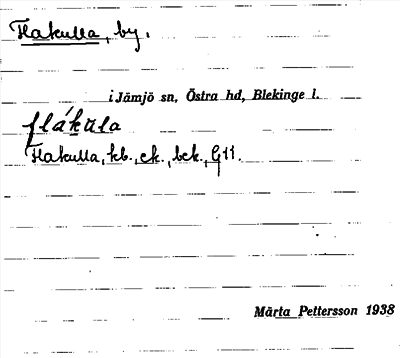 Flakulla, by.
i Jämjö sn, Östra hd, Blekinge l.
flákula
Flakulla, kb., ek., bek., G11.
Märta Pettersson 1938